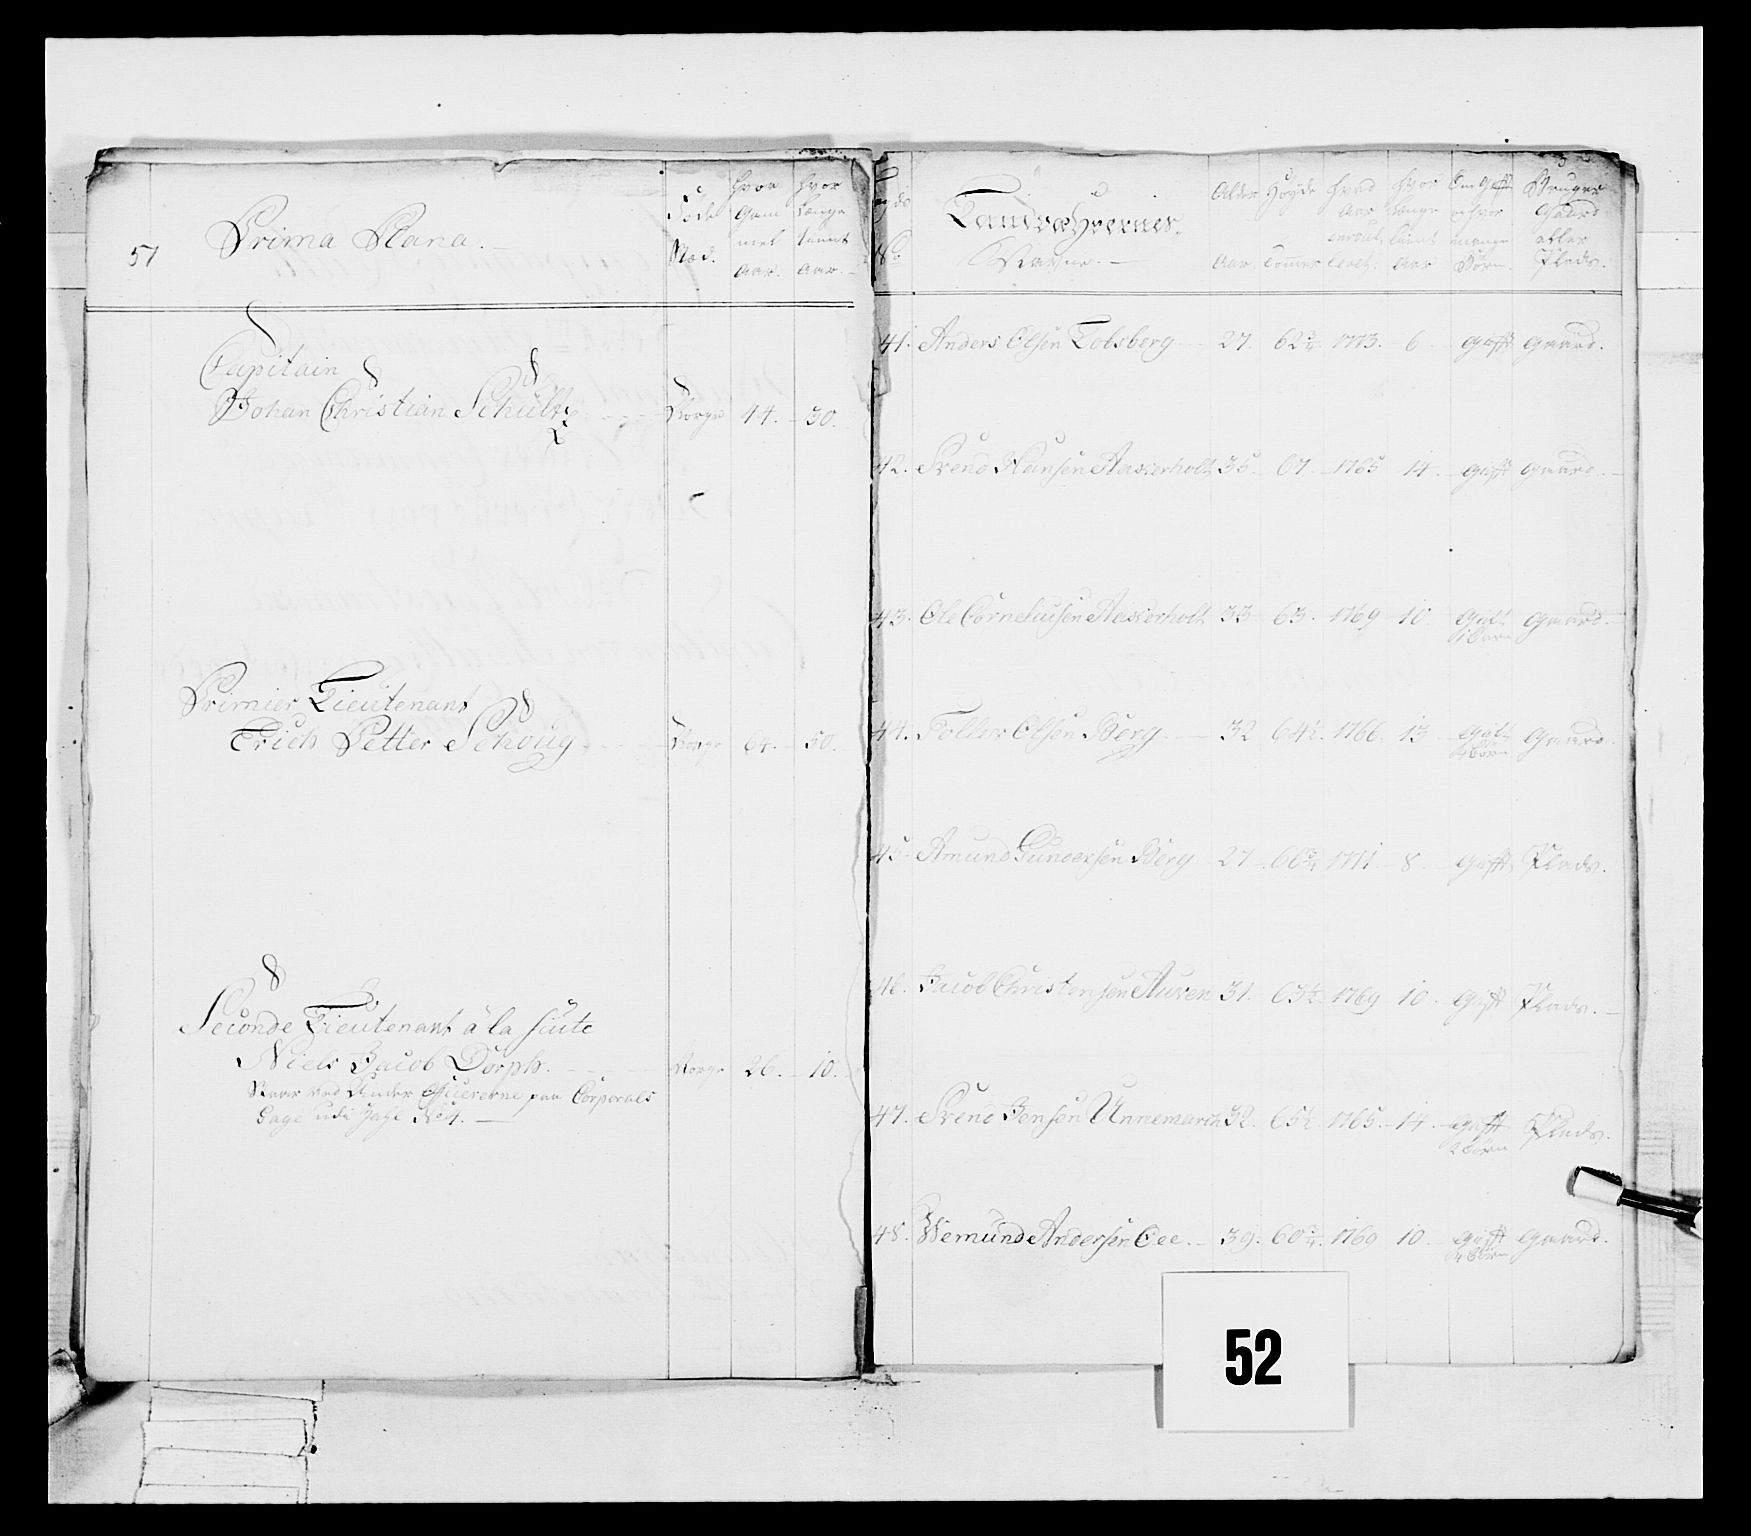 51 Prima Plana.
Føde Stæd.
hvor Gam mel Aar.
hvor Længe tient Aar.
Capitain
Johan Christian Schultz Norge 44. 30.
Primier Lieutenant
Erich Petter Schoug Norge 64. 50.
Seconde Lieutenant à la suite
Niels Jacob Dorph. Norge 26. 10.
Staar ved Under Officererne paa Corporals
Gage udi No 4.
No
Landværnes
Navne.
Alder Aar.
Høyde Tommer
hvad Aar enroul leret.
hvor Længe tient Aar
Om gift og hvor mange Børn.
Bruger Gaard eller Plads.
41. Anders Olsen Tobsberg 27. 62 3/4 1773. 6 gift gaard.
42. Svend Hansen Aaserholt 35. 67. 1765 14. gift gaard.
43. Ole Corneliusen Aaserholt 33 63. 1769 10. gift
1 barn gaard.
44. Toller Olsen Berg 32 64 1/2. 1766. 13 gift
4 børn Gaard.
45. Amund Gundersen Berg 27 66 3/4 1771. 8. gift Plads.
46. Jacob Christensen Auven 31. 63 1/2 1769 10. gift Plads.
47. Svend Jensen Unnemarch 32. 65 1/2. 1765. 14. gift
2 børn Plads.
48. Wemund Andersen Eee 39. 60 3/4. 1769 10. gift
4 børn Gaard.
52